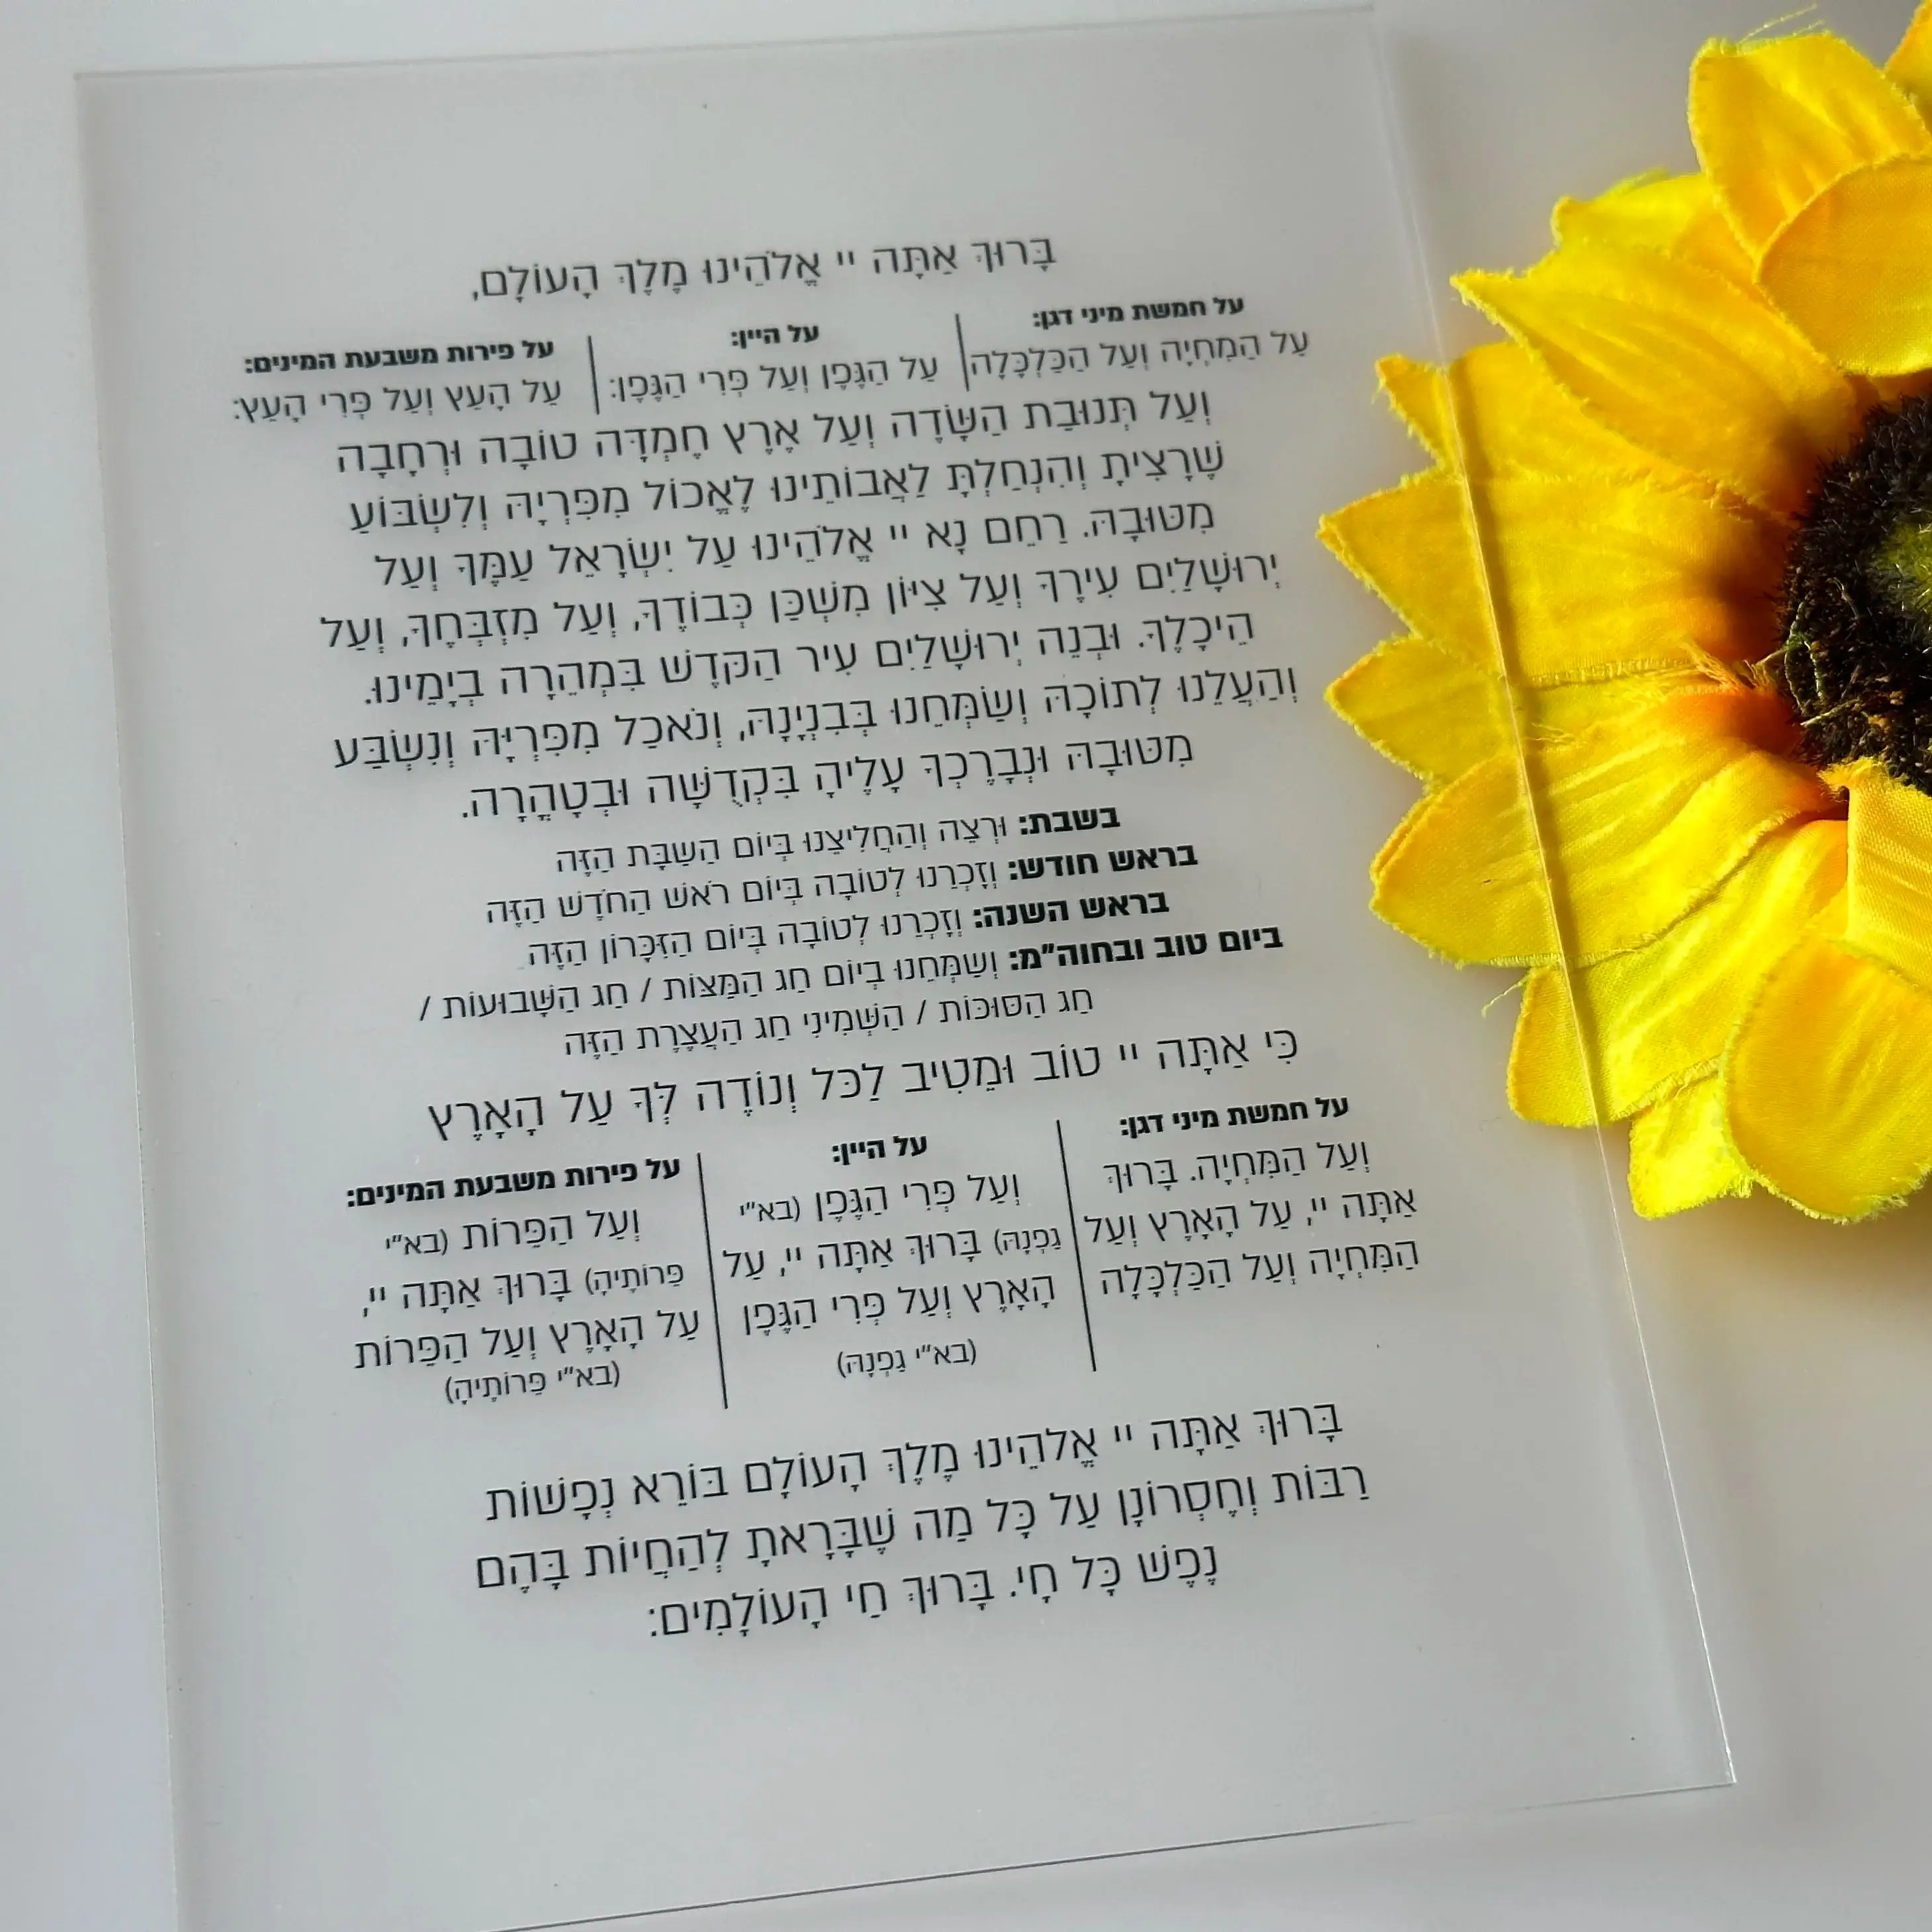 בָּרוּךְ אַתָּה יי אֱלֹהֵינוּ מֶלֶךְ הָעוֹלָם,
על חמשת מיני דגן:
עַל הַמִּחְיָה וְעַל הַכַּלְכָּלָה
על היין:
עַל הַגֶּפֶן וְעַל פְּרִי הַגֶּפֶן:
על פירות משבעת המינים:
עַל הָעֵץ וְעַל פְּרִי הָעֵץ:
וְעַל תְּנוּבַת הַשָּׂדֶה וְעַל אֶרֶץ חֶמְדָּה טוֹבָה וּרְחָבָה
שֶׁרָצִיתָ וְהִנְחַלְתָּ לַאֲבוֹתֵינוּ לֶאֱכוֹל מִפִּרְיָהּ וְלִשְׂבּוֹעַ
מִטּוּבָהּ. רַחֵם נָא יי אֱלֹהֵינוּ עַל יִשְׂרָאֵל עַמֶּךָ וְעַל
יְרוּשָׁלַיִם עִירֶךָ וְעַל צִיּוֹן מִשְׁכַּן כְּבוֹדֶךָ, וְעַל מִזְבְּחֶךָ, וְעַל
הֵיכָלֶךָ. וּבְנֵה יְרוּשָׁלַיִם עִיר הַקֹּדֶשׁ בִּמְהֵרָה בְיָמֵינוּ.
וְהַעֲלֵנוּ לְתוֹכָהּ וְשַׂמְּחֵנוּ בְּבִנְיָנָהּ, וְנֹאכַל מִפִּרְיָהּ וְנִשְׂבַּע
מִטּוּבָהּ וּנְבָרֶכְךָ עָלֶיהָ בִּקְדֻשָּׁה וּבְטָהֳרָה.
בשבת: וּרְצֵה וְהַחֲלִיצֵנוּ בְּיוֹם הַשַּׁבָּת הַזֶּה
בראש חודש: וְזָכְרֵנוּ לְטוֹבָה בְּיוֹם רֹאשׁ הַחֹדֶשׁ הַזֶּה
בראש השנה: וְזָכְרֵנוּ לְטוֹבָה בְּיוֹם הַזִּכָּרוֹן הַזֶּה
ביום טוב ובחוה"מ: וְשַׂמְּחֵנוּ בְיוֹם חַג הַמַּצּוֹת / חַג הַשָּׁבוּעוֹת /
חַג הַסּוּכּוֹת / הַשְּׁמִינִי חַג הָעֲצֶרֶת הַזֶּה
כִּי אַתָּה יי טוֹב וּמֵטִיב לַכֹּל וְנוֹדֶה לְּךָ עַל הָאָרֶץ
על חמשת מיני דגן:
וְעַל הַמִּחְיָה. בָּרוּךְ
אַתָּה יי, עַל הָאָרֶץ וְעַל
הַמִּחְיָה וְעַל הַכַּלְכָּלָה
על היין:
וְעַל פְּרִי הַגֶּפֶן (בא"י
גַּפְנָהּ) בָּרוּךְ אַתָּה יי, עַל
הָאָרֶץ וְעַל פְּרִי הַגֶּפֶן
(בא"י גַּפְנָהּ)
על פירות משבעת המינים:
וְעַל הַפֵּרוֹת (בא"י
פֵּרוֹתֶיהָ) בָּרוּךְ אַתָּה יי,
עַל הָאָרֶץ וְעַל הַפֵּרוֹת
(בא"י פֵּרוֹתֶיהָ)
בָּרוּךְ אַתָּה יי אֱלֹהֵינוּ מֶלֶךְ הָעוֹלָם בּוֹרֵא נְפָשׁוֹת
רַבּוֹת וְחֶסְרוֹנָן עַל כָּל מַה שֶּׁבָּרָאתָ לְהַחֲיוֹת בָּהֶם
נֶפֶשׁ כָּל חָי. בָּרוּךְ חַי הָעוֹלָמִים: